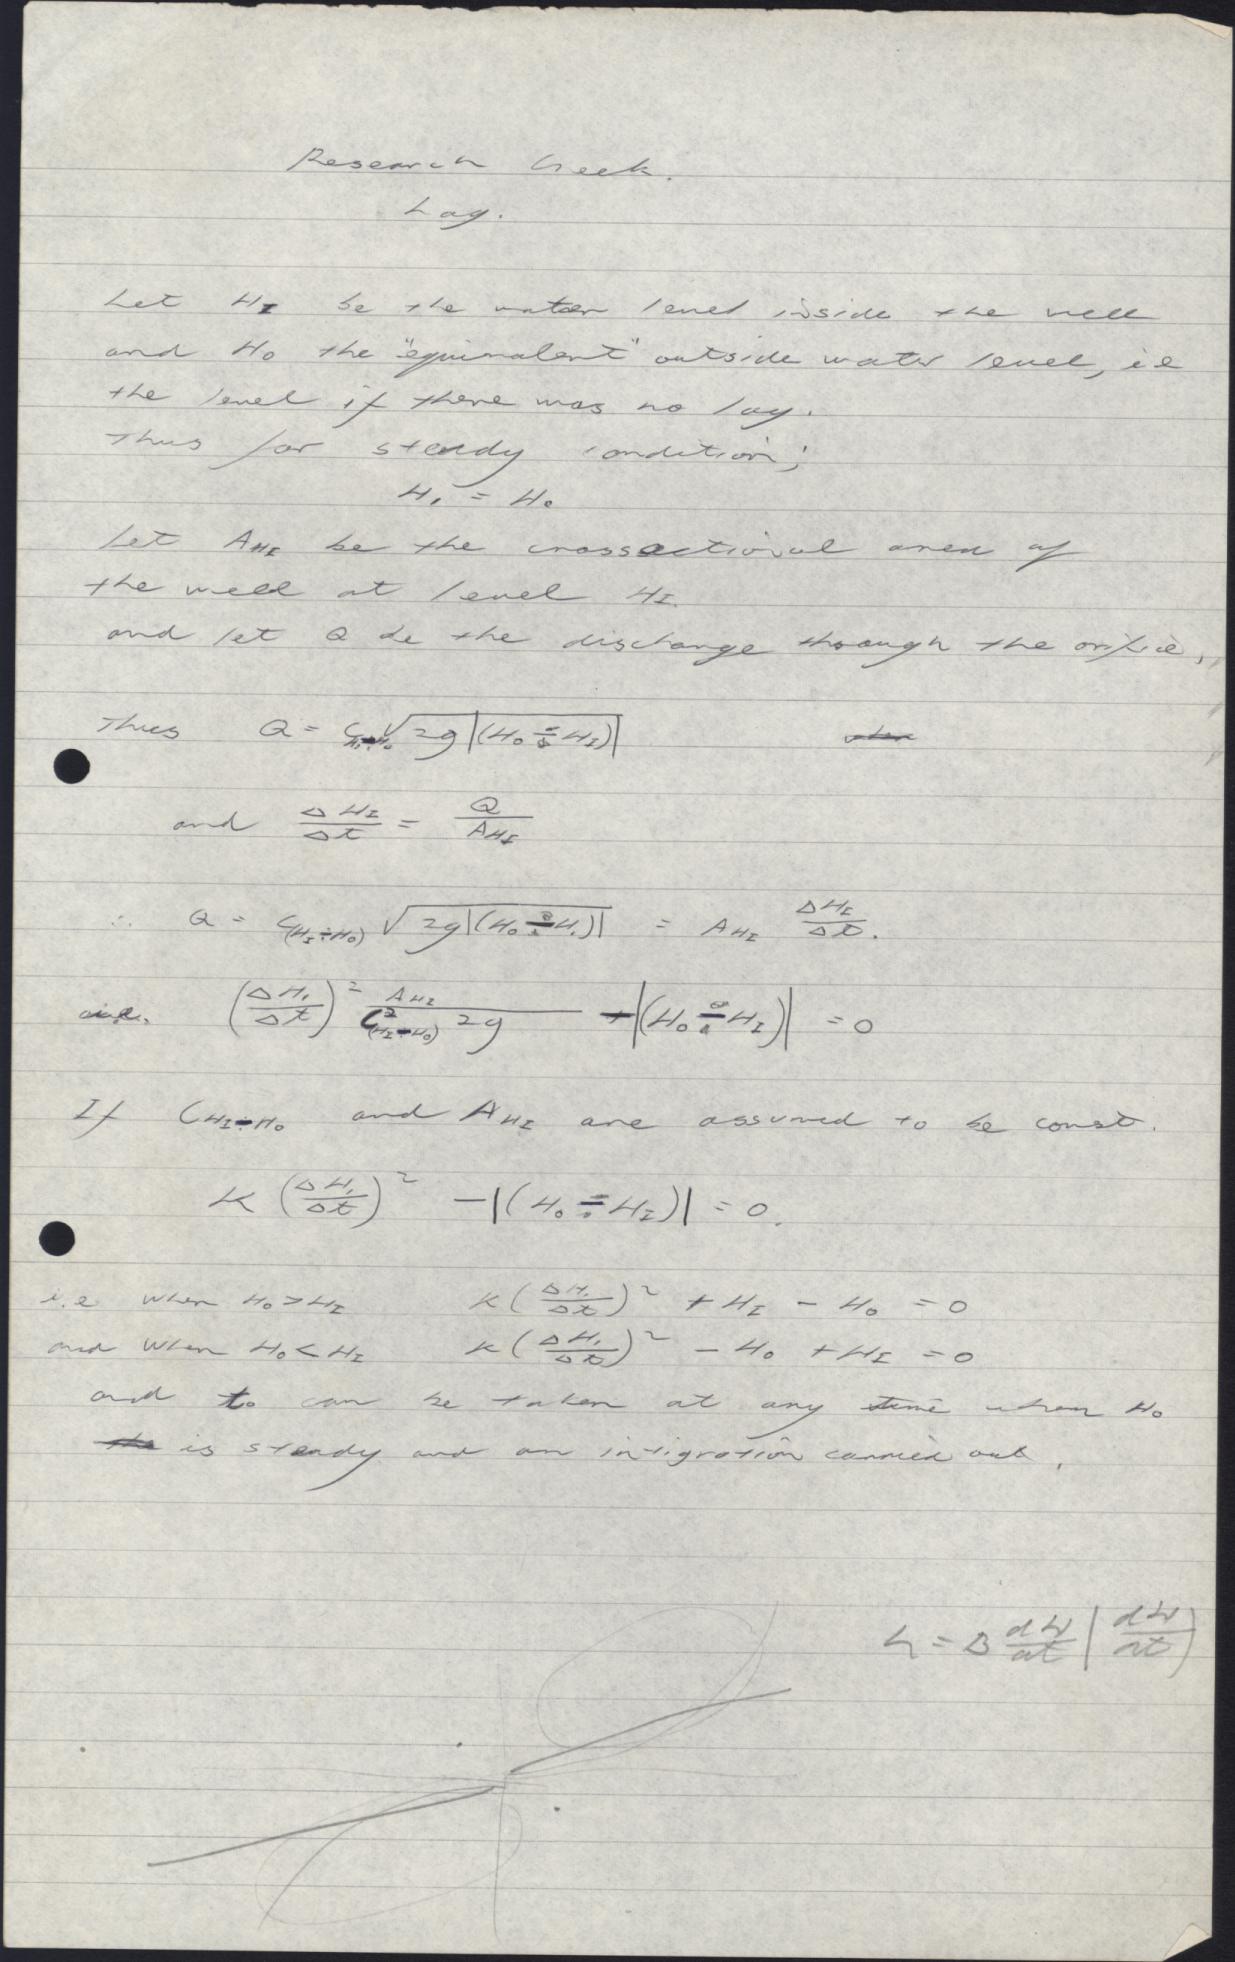 Research Creek.
Lag.
Let H_I be the water level inside the well
and H_o the "equivalent" outside water level, i.e
the level if there was no lag.
Thus for steady condition;
H_I = H_o
Let A_HI be the crossectional area of
the well at level H_I.
and let Q be the discharge through the orifice,
Thus Q = C_(H_I÷H_o) √2g|(H_o ÷ H_I)|
and ΔH_I/Δt = Q/A_HI
∴ Q = C_(H_I÷H_o) √2g|(H_o ÷ H_I)| = A_HI ΔH_I/Δt.
i.e. (ΔH_I/Δt)² A_HI/C²_(H_I-H_o) 2g -|(H_o ÷ H_I)| = 0
If C_HI-Ho and A_HI are assumed to be const.
K (ΔH_I/Δt)² -|(H_o ÷ H_I)| = 0.
i.e when H_o > H_I K(ΔH_I/Δt)² + H_I - H_o = 0
and when H_o < H_I K(ΔH_I/Δt)² - H_o + H_I = 0
and t_o can be taken at any time when H_o
is steady and an intigration carried out.
h = B dH/dt |dH/dt|